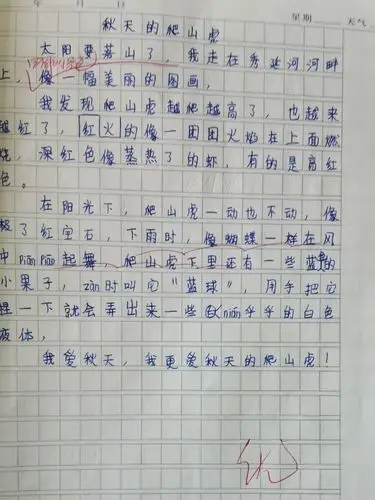 年 月 日 星期 天气
秋天的爬山虎
太阳要落山了，我走在秀延河河畔
上，像一幅美丽的图画，
我发现爬山虎越爬越高了，也越来
越红了，红火的像一团团火焰在上面燃
烧，深红色像蒸熟了的虾，有的是高红
色。
在阳光下，爬山虎一动也不动，像
极了红宝石，下雨时，像蝴蝶一样在风
中piān piān起舞，爬山虎下里还有一些蓝色的
小果子，zàn时叫它“蓝球”，用手把它
捏一下就会弄出来一些nián乎乎的白色
液体，
我爱秋天，我更爱秋天的爬山虎！
优